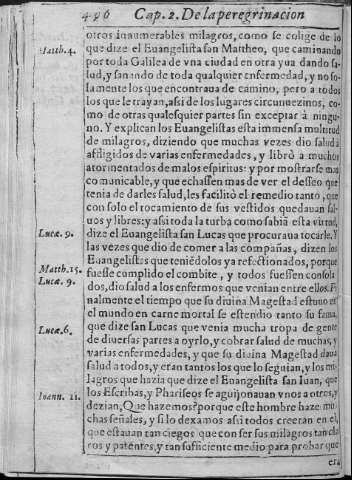 496 Cap. 2. De la peregrinacion
otros innumerables milagros, como se colige de lo
Matth. 4. que dize el Euangelista san Mattheo, que caminando
por toda Galilea de vna ciudad en otra yua dando sa-
lud, y sanando de toda qualquier enfermedad, y no so-
lamente los que encontraua de camino, pero a todos
los que le trayan, asi de los lugares circunuezinos, co-
mo de otras qualesquier partes sin exceptar à ningu-
no. Y explican los Euangelistas esta immensa multitud
de milagros, diziendo que muchas vezes dio salud à
affligidos de varias enfermedades, y librò a muchos
atormentados de malos espiritus: y por mostrarse mas
comunicable, y que echassen mas de ver el desseo que
tenia de darles salud, les facilitò el remedio tanto, que
con solo el tocamiento de sus vestidos quedauan sal-
uos y libres: y asi toda la turba como sabia esta virtud,
Lucæ. 9. dize el Euangelista san Lucas que procuraua tocarle. Y
las vezes que dio de comer a las compañas, dizen los
Euangelistas que teniẽdolos ya refectionados, porque
Matth. 15. fuesse cumplido el combite, y todos fuessen consola
Lucæ. 9. dos, dio salud a los enfermos que venian entre ellos. Fi
nalmente el tiempo que su diuina Magestad estuuo en
el mundo en carne mortal se estendio tanto su fama,
Lucæ. 6. que dize san Lucas que venia mucha tropa de gente
de diuersas partes a oyrlo, y cobrar salud de muchas, y
varias enfermedades, y que su diuina Magestad daua
salud a todos, y eran tantos los que lo seguian, y los mi-
lagros que hazia que dize el Euangelista san Iuan, que
Ioann. 11. los Escribas, y Phariseos se aguijonauan vnos a otros, y
dezian, Que hazemos? porque este hombre haze mu-
chas señales, y si lo dexamos asi todos creeran en el,
que estauan tan ciegos que con ser sus milagros tan cla
ros y patentes, y tan sufficiente medio para probar que